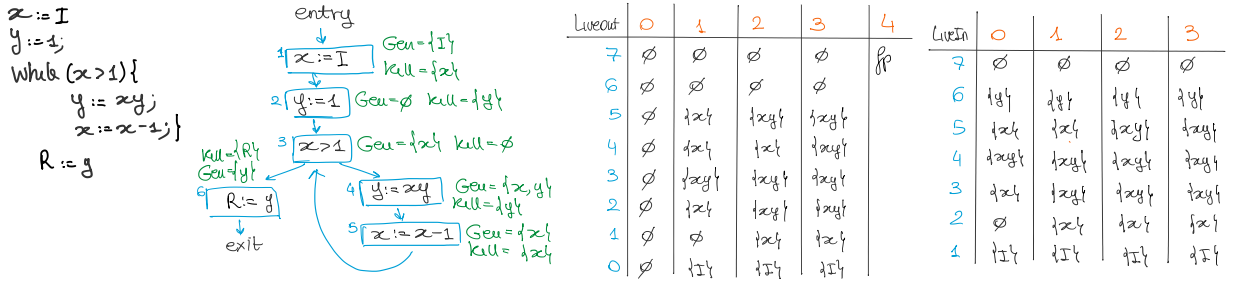 x := I
y := 1;
while (x>1) {
y := xy;
x := x-1; }
R := y
entry
1 x := I Gen = {I} Kill = {x}
2 y := 1 Gen = ∅ Kill = {y}
3 x>1 Gen = {x} Kill = ∅
Kill = {R}
Gen = {y}
6 R := y
exit
4 y := xy Gen = {x,y} Kill = {y}
5 x := x-1 Gen = {x} Kill = {x}
LiveOut 0 1 2 3 4
7 ∅ ∅ ∅ ∅ fp
6 ∅ ∅ ∅ ∅
5 ∅ {x} {xy} {xy}
4 ∅ {x} {x} {xy}
3 ∅ {xy} {xy} {xy}
2 ∅ {x} {xy} {xy}
1 ∅ ∅ {x} {x}
0 ∅ {I} {I} {I}
LiveIn 0 1 2 3
7 ∅ ∅ ∅ ∅
6 {y} {y} {y} {y}
5 {x} {x} {xy} {xy}
4 {xy} {xy} {xy} {xy}
3 {x} {xy} {xy} {xy}
2 ∅ {x} {x} {x}
1 {I} {I} {I} {I}